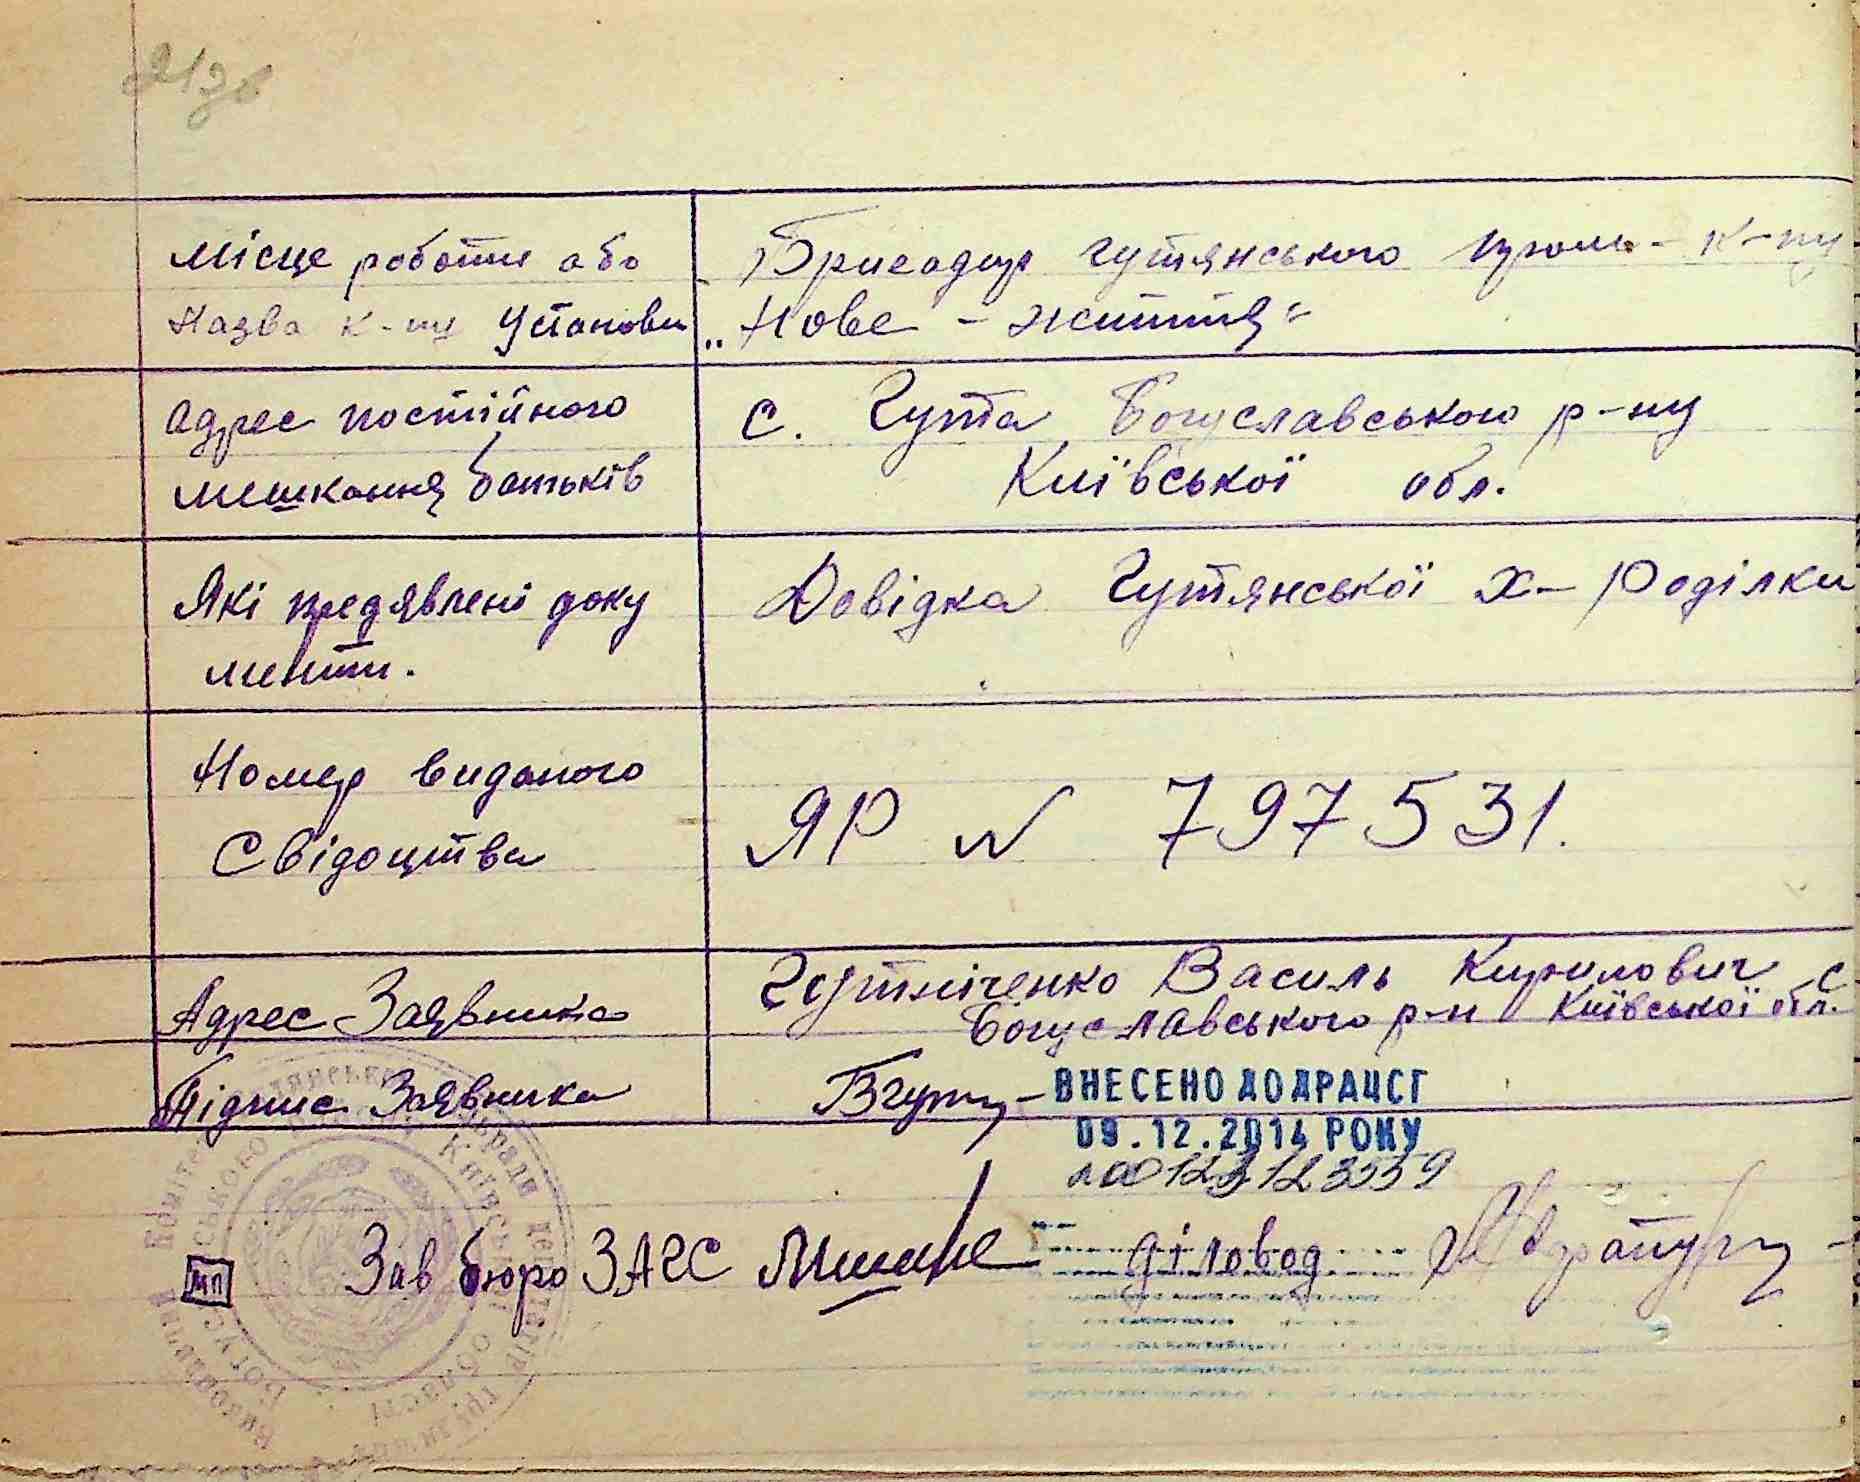 213б
Місце роботи або
Назва к-пу Установи
Бригадир гутянського пром- к-пу
„Нове - життя"
Адрес постійного
мешкання батьків
с. Гута Богуславського р-ну
Київської обл.
Які предявлені доку
менти.
Довідка Гутянської х-роділки
Номер виданого
Свідоцтва
ЯР N 797531.
Адрес Заявника
Гутніченко Василь Кирилович с
Богуславського р-н Київської обл.
Підпис Заявника
Вгутн-
ВНЕСЕНО ДО ДРАЦСГ
09.12.2014 РОКУ
00123123559
МП
Зав бюро ЗАГС
діловод